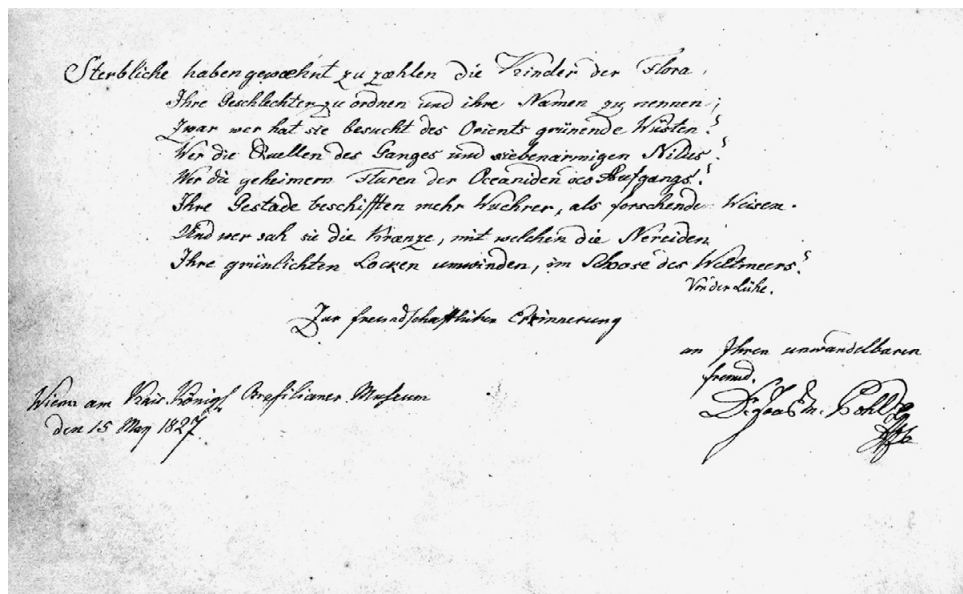 Sterbliche haben gewæhnt zu zæhlen die Kinder der Flora,
Ihre Geschlechter zu ordnen und ihre Namen zu nennen;
Zwar wer hat sie besucht des Orients grünende Wüsten?
Wer die Quellen des Ganges und siebenarmigen Nilus?
Wer die geheimern Fluren der Oceaniden des Aufgangs?
Ihre Gestade beschifften mehr Wuchrer, als forschende Weisen.
Und wer sah sie die Krænze, mit welchen die Nereiden
Ihre grünlichten Locken umwinden, im Schoose des Weltmeers?
Von der Lühe.
Zur freundschaftlichen Erinnerung
an Ihren unwandelbaren
freund.
Wien am Kais. Königl Brasilianer Museum
den 15 May 1827.
Dr. Joh. Em. Pohl